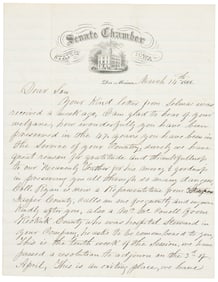 Senate Chamber
STATE OF IOWA
Des Moines March 14th
Dear Son
Your Kind letter from Selma was
received a week ago, Am glad to hear of your
welfare, how wonderfully you have been
preserved in the years you have been in
the Service of your Country, surely we have
great reason for gratitude and thankfulness
to our Heavenly Father for his mercy & goodness
in preserving you all through so many dangers
Ryan is now a Representative from
Jasper County, calls on me frequently and enquires
Kindly after you, also a Mr. Mc
County who was hospital Steward in
your Company, he asks to be remembered to you
This is the tenth week of the Session, we have
passed a resolution to adjourn on the 3rd of
April, This is an exciting place, we have